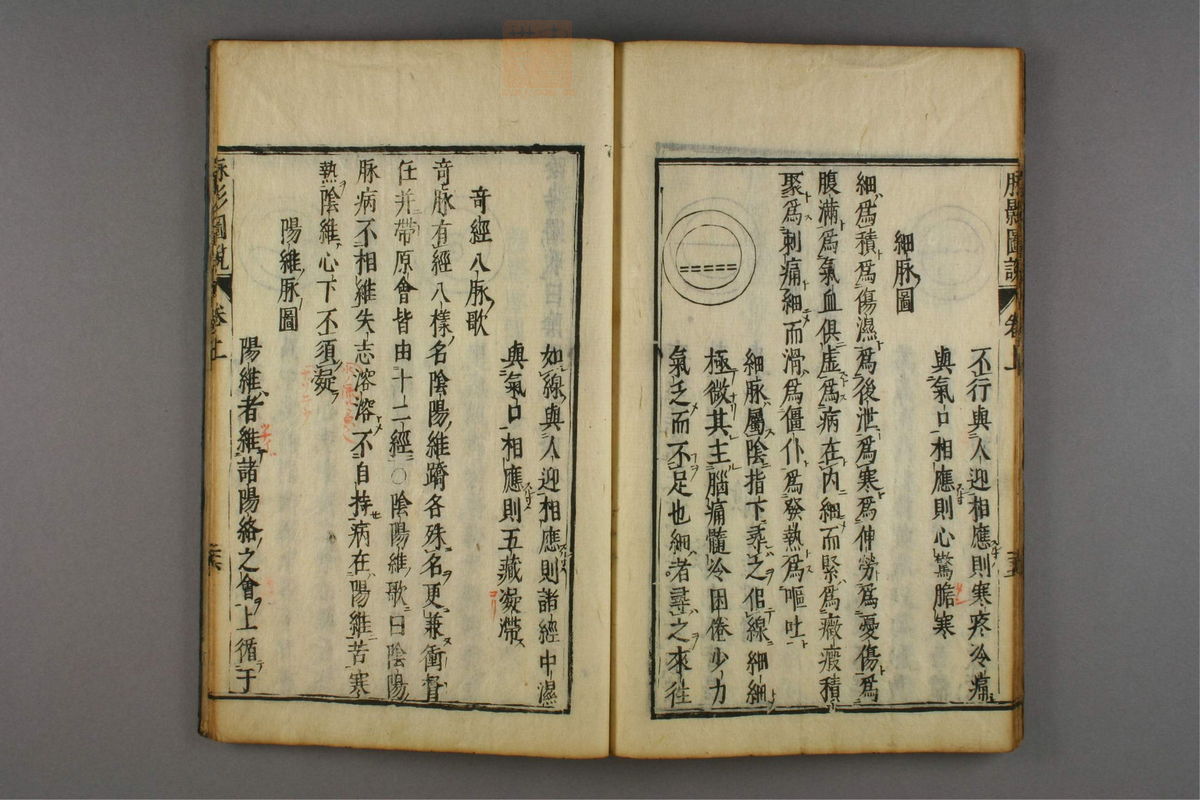 脉影圖說 卷上
不行與人迎相應則寒疼冷痛
與氣口相應則心驚膽寒
細脉圖
細爲積爲傷濕爲後泄爲寒爲伸勞爲憂傷爲
腹滿爲氣血俱虛爲病在內細而緊爲癥瘕積
聚爲刺痛細而滑爲僵仆爲發熱爲嘔吐
細脉屬陰指下尋之佀線細細
極微其主腦痛髓冷困倦少力
氣乏而不足也細者尋之來往
如線與人迎相應則諸經中濕
與氣口相應則五藏凝滯
奇經八脉歌
奇脉有經八樣名陰陽維蹻各殊名更兼衝督
任并帶原會皆由十二經○陰陽維歌曰陰陽
脉病不相維失志溶溶不自持病在陽維苦寒
熱陰維心下不須凝
陽維脉圖
陽維者維諸陽絡之會上循于
脉影圖說 卷上